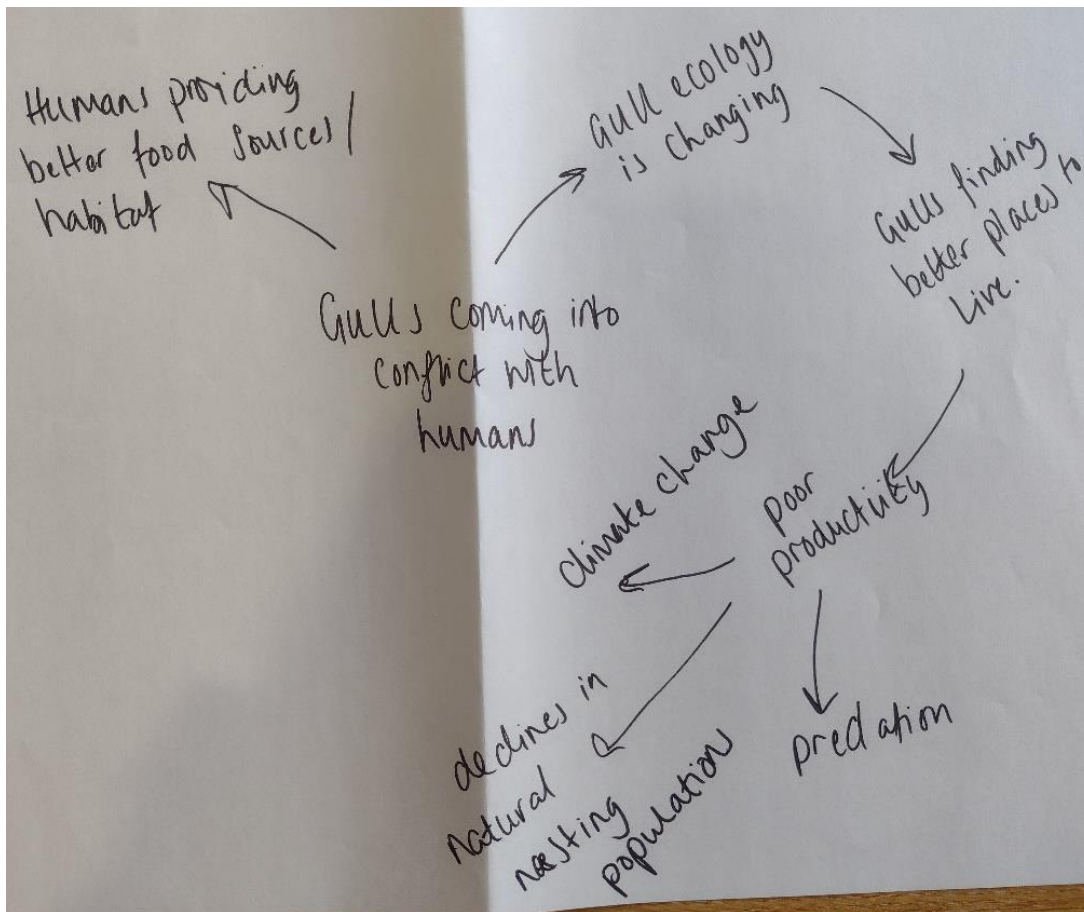 Humans providing
better food sources/
habitat
Gull ecology
is changing
Gulls finding
better places to
live.
Gulls coming into
conflict with
humans
climate change
poor
productivity
declines in
natural
nesting
population
predation